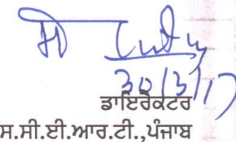 30/3/17
ਡਾਇਰੈਕਟਰ
ਸ.ਸੀ.ਈ.ਆਰ.ਟੀ.,ਪੰਜਾਬ